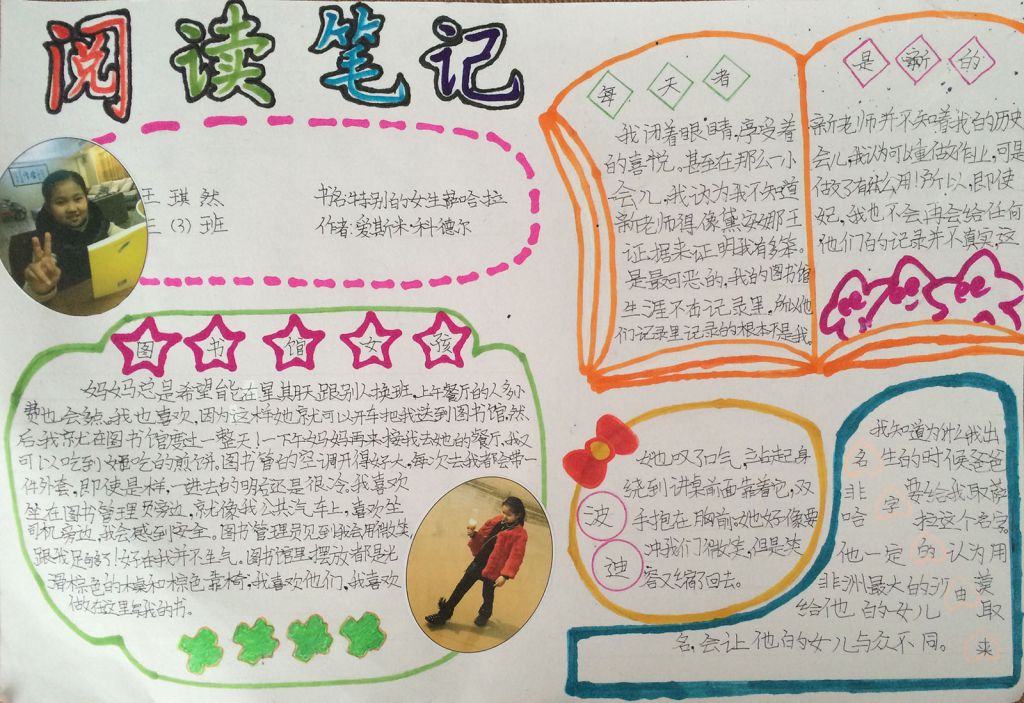 阅读笔记
王琪然
三（3）班
书名:特别的女生萨哈拉
作者:爱斯米·科德尔
图书馆女孩
妈妈总是希望能在星期天跟别人换班,上午餐厅的人多小
费也会多点。我也喜欢,因为这样她就可以开车把我送到图书馆,然
后,我就在图书馆度过一整天!一下午妈妈再来接我去她的餐厅,我又
可以吃到好吃的煎饼。图书馆的空调开得好大,每次去我都会带一
件外套,即使是样,一进去的时候还是很冷。我喜欢
坐在图书管理员旁边,就像我公共汽车上,喜欢坐
司机旁边,我会感到安全。图书管理员见到我会用微笑
跟我足够了!好在我并不生气。图书馆里摆放都是光
滑棕色的木桌和棕色靠椅,我喜欢他们,我喜欢
做在这里写我的书。
每天者
我闭着眼睛,享受着
的喜悦。甚至在那么一小
会儿,我认为我不知道
新老师得像黛安娜王
证据来证明我有多笨。
是最可恶的,我的图书馆
生涯不在记录里,所以他
们记录里记录的根本不是我。
是新的
新老师并不知着我的历史
会儿,我认为可以重做作业,可是
做了有什么用!所以,即使
妃,我也不会再会给任何
他们的记录并不真实,这
波迪
她叹了口气,站起身
绕到讲桌前面靠着它,双
手抱在胸前。她好像要
冲我们微笑,但是笑
容又缩了回去。
名字的由来
我知道为什么我出
生的时候爸爸
非要给我取萨
哈拉这个名字。
他一定认为用
非洲最大的沙漠
给他的女儿取
名,会让他的女儿与众不同。